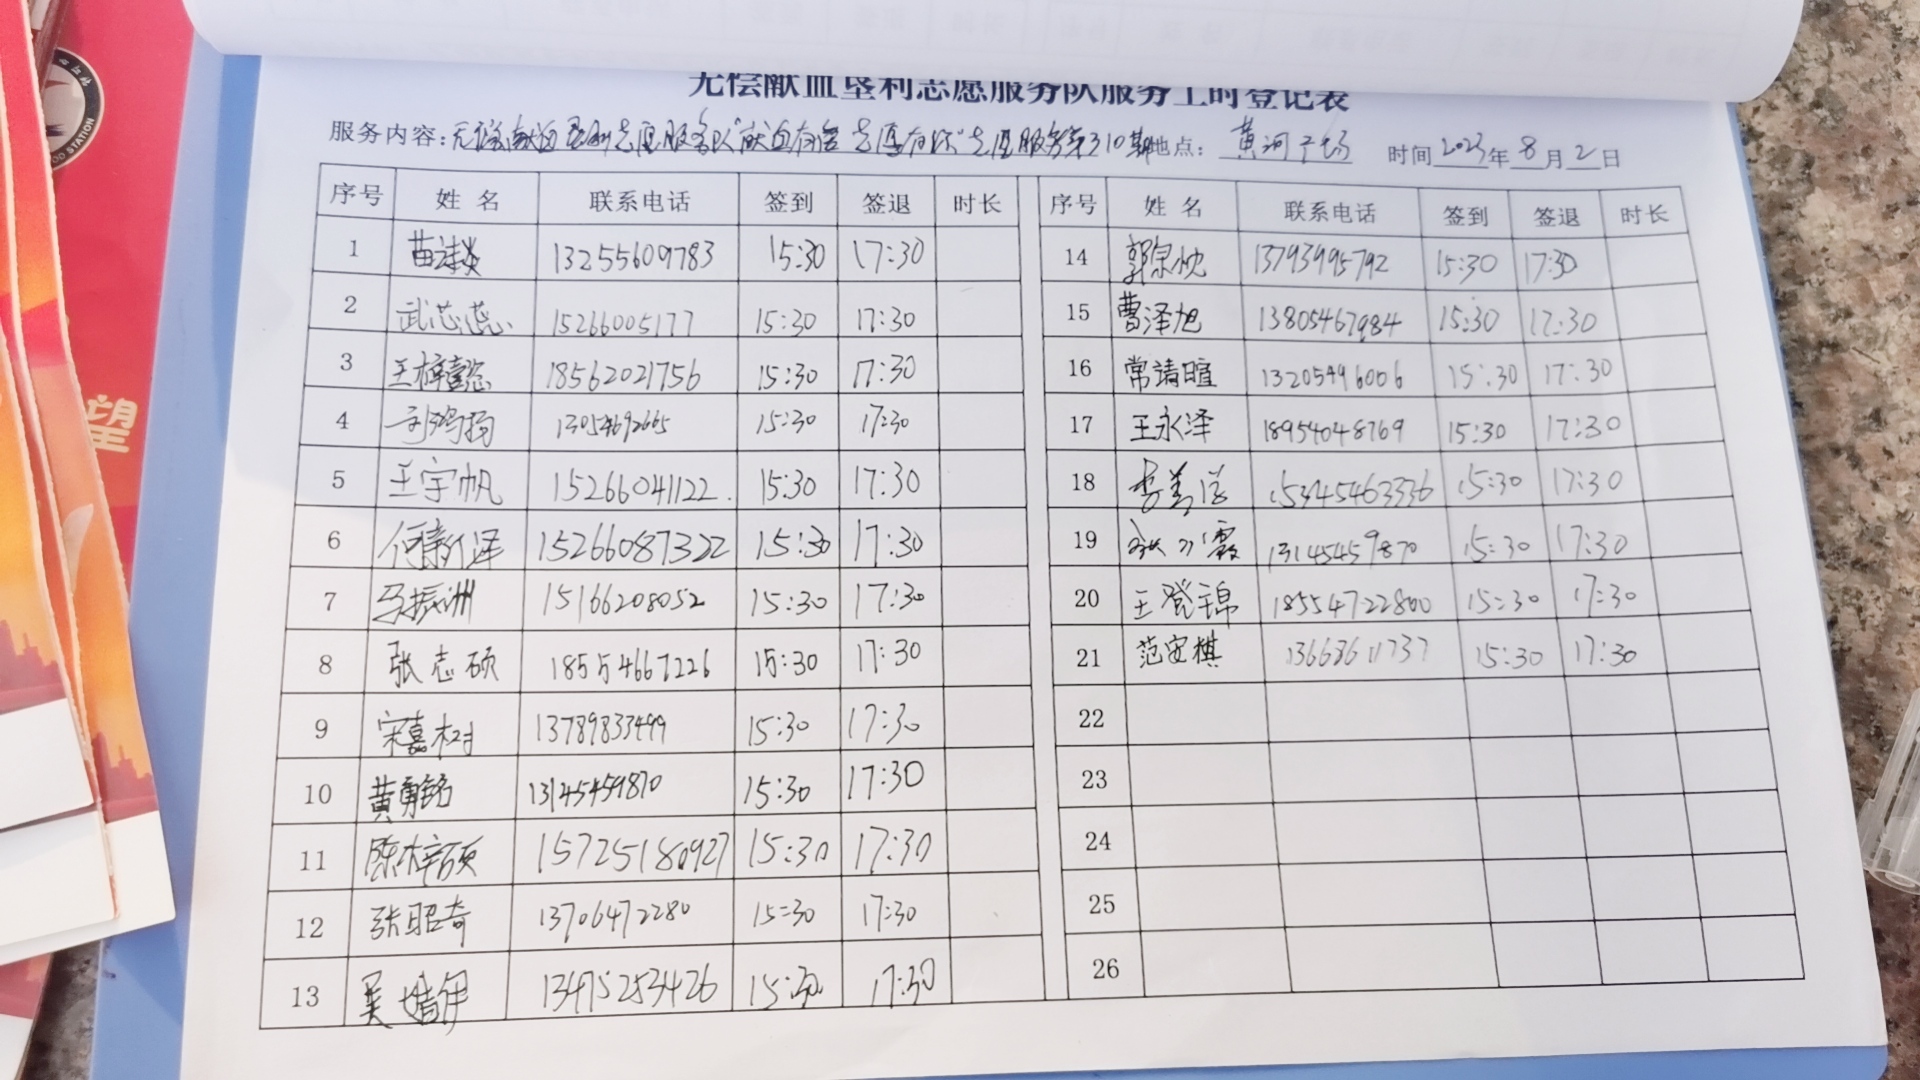 无偿献血垦利志愿服务队服务工时登记表
服务内容:无偿献血垦利志愿服务队"献血有我 志愿有你"志愿服务第310期 地点:黄河广场 时间2023年8月2日
序号 姓名 联系电话 签到 签退 时长 序号 姓名 联系电话 签到 签退 时长
1 13255609783 15:30 17:30 14 13793995792 15:30 17:30
2 武芯蕊 15266005177 15:30 17:30 15 曹泽旭 13805467984 15:30 17:30
3 王梓懿 18562021756 15:30 17:30 16 常靖暄 13205496006 15:30 17:30
4 刘鸿扬 13054692665 15:30 17:30 17 王永泽 18954048769 15:30 17:30
5 王宇帆 15266041122. 15:30 17:30 18 15:30 17:30
6 何新泽 15266087322 15:30 17:30 19 13145459870 15:30 17:30
7 马振洲 15166208052 15:30 17:30 20 王登锦 18554722800 15:30 17:30
8 张志硕 18554667226 15:30 17:30 21 范安棋 13668611737 15:30 17:30
9 宋嘉树 13789833499 15:30 17:30 22
10 黄勇铭 13145459870 15:30 17:30 23
11 陈梓硕 15725180927 15:30 17:30 24
12 张昭奇 13706472280 15:30 17:30 25
13 吴婧伊 13475253426 15:30 17:30 26
望
STATION